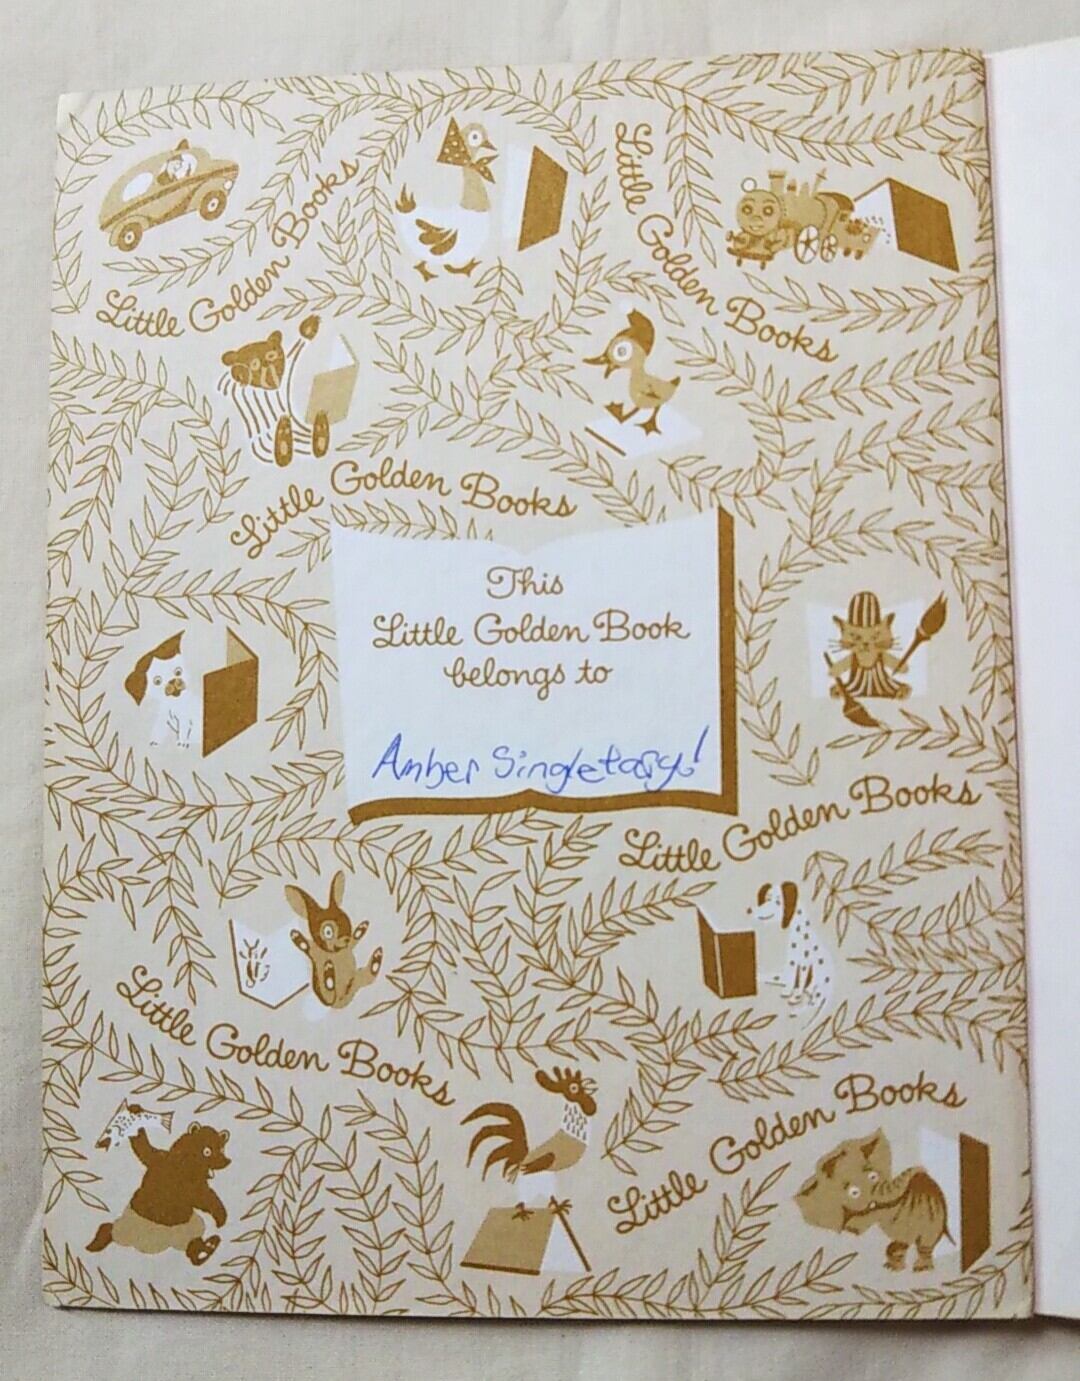 Little Golden Books
Little Golden Books
Little Golden Books
This
Little Golden Book
belongs to
Amber Singletary!
Little Golden Books
Little Golden Books
Little Golden Books